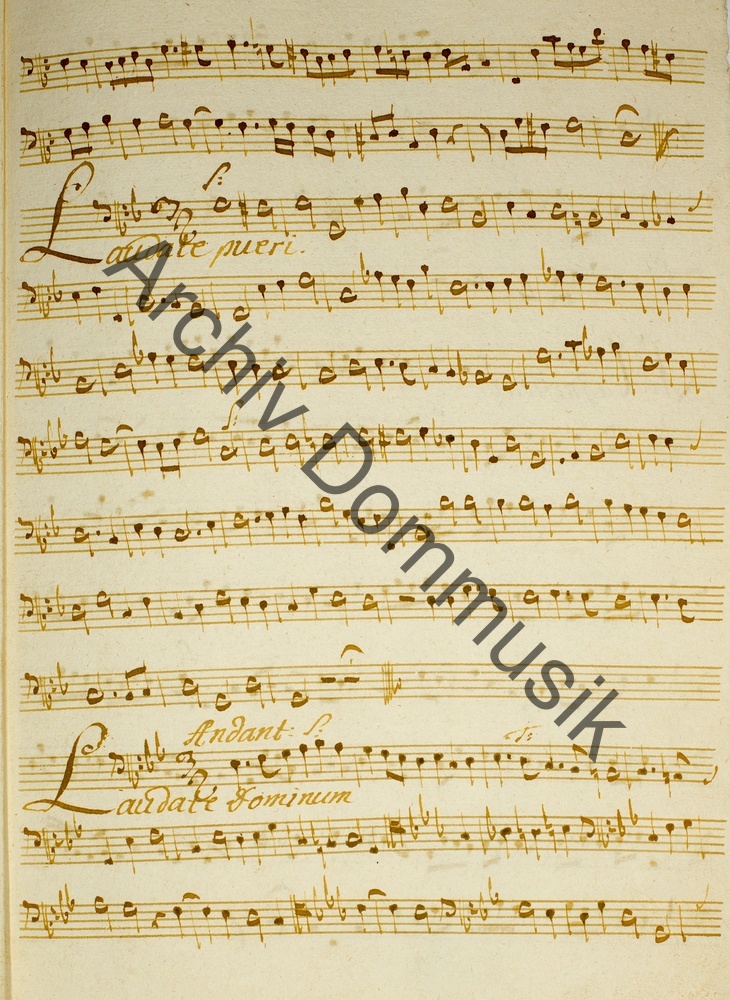 S:
Laudate pueri.
S:
Andant: S: T:
Laudate Dominum
Archiv Dommusik